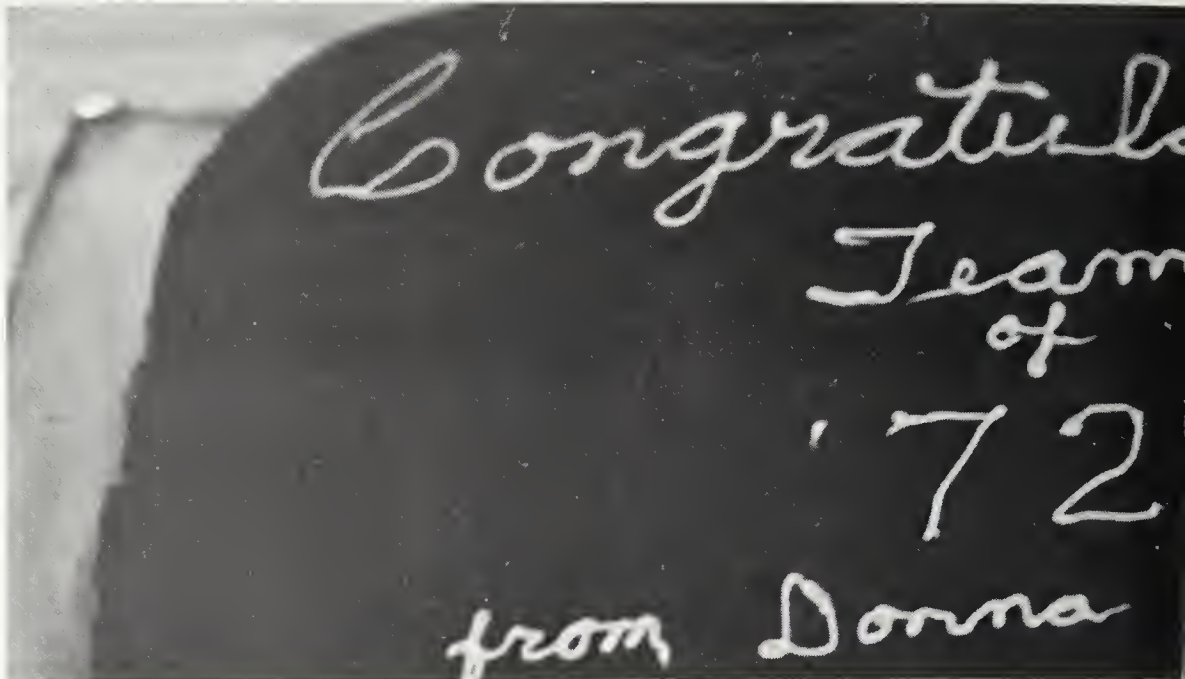 Congratula
Team
of
'72
from Donna